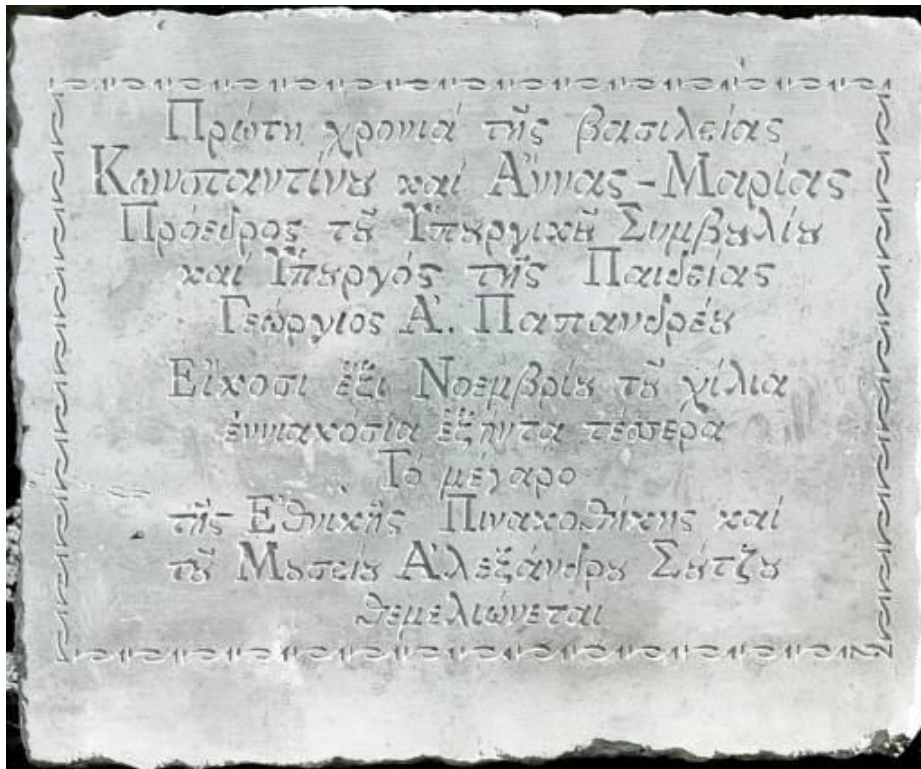 Πρώτη χρονιά τῆς βασιλείας
Κωνσταντίνȣ καί Ἄννας-Μαρίας
Πρόεδρος τȣ͂ Ὑπȣργικȣ͂ Συμβȣλίȣ
καί Ὑπȣργός τῆς Παιδείας
Γεώργιος Ἀ. Παπανδρέȣ
Εἴκοσι ἕξι Νοεμβρίȣ τȣ͂ χίλια
ἐννιακόσια ἑξήντα τέσσερα
Τό μέγαρο
τῆς Ἐθνικῆς Πινακοθήκης καί
τȣ͂ Μȣσείȣ Ἀλεξάνδρȣ Σȣ́τζȣ
θεμελιώνεται